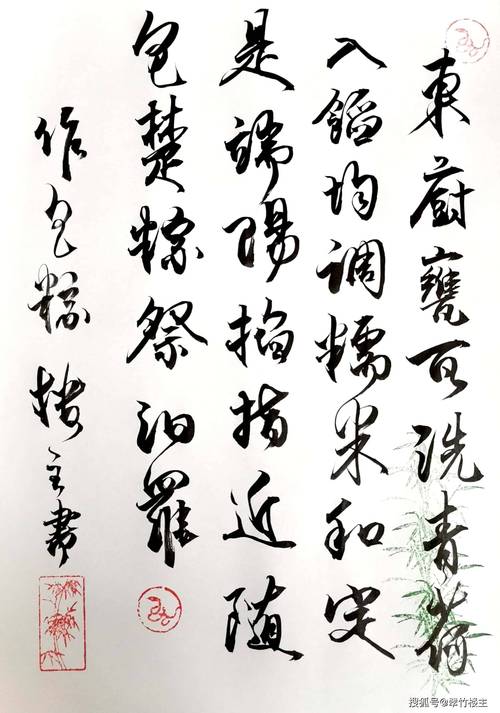 東廚甕瓦洗青荷
入餡均調糯米和定
是端陽掐指近隨
包楚粽祭汨羅
作包粽 楼主書
搜狐号@翠竹楼主